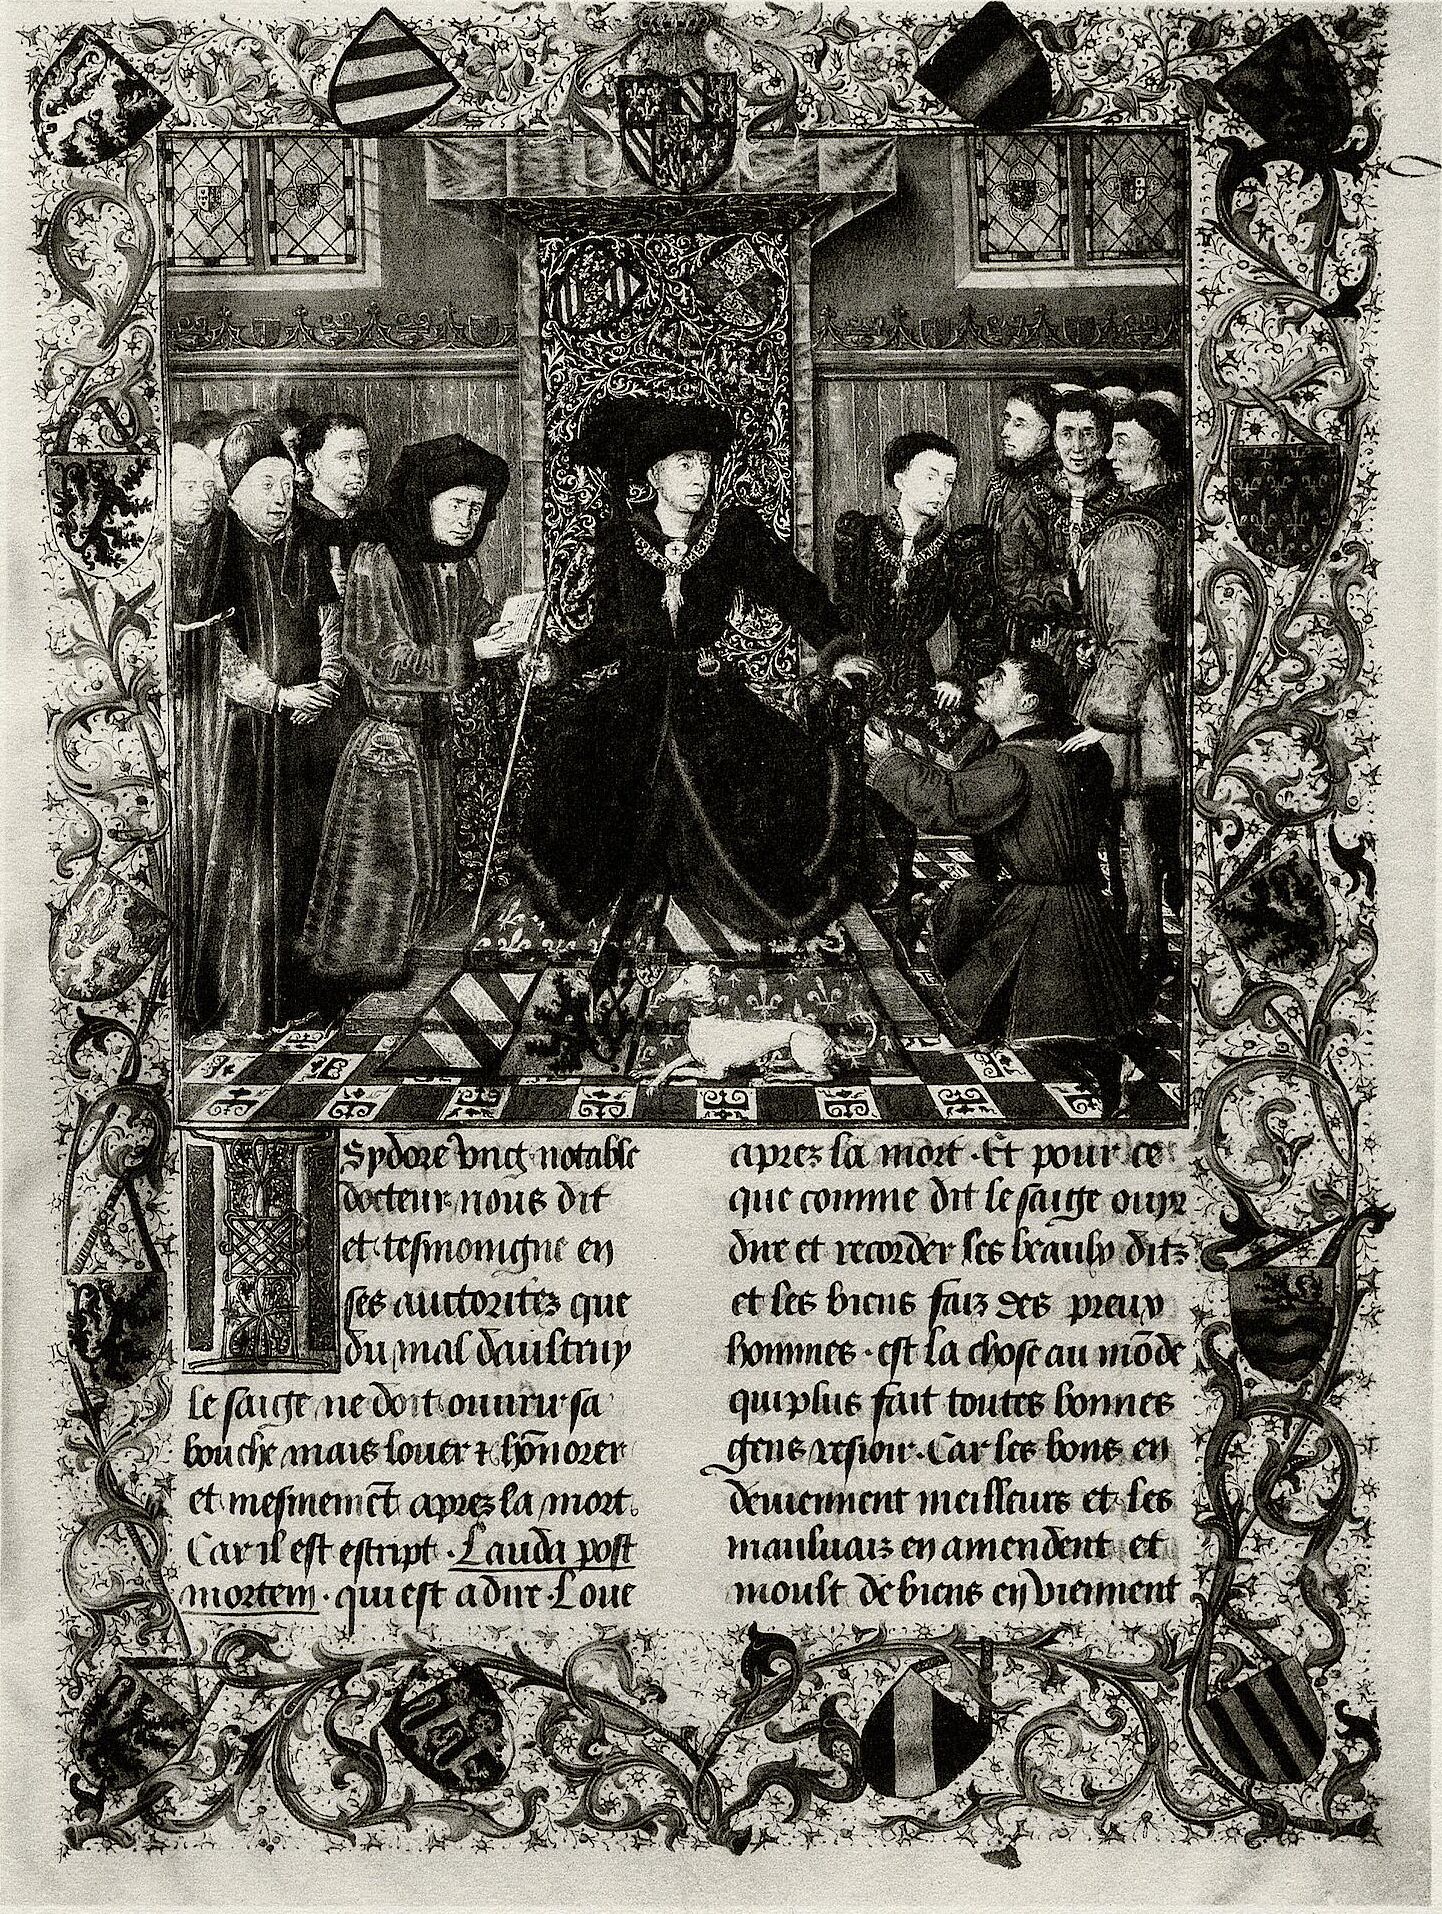 Isydore vng notable
docteur nous dit
et tesmoingne en
ses auctoritez que
du mal daultruy
le saige ne doit ouurir sa
bouche mais louer ⁊ hōnorer
et mesmemēt aprez la mort.
Car il est escript . Lauda post
mortem . qui est a dire . Loue
aprez la mort . Et pour ce
que comme dit le saige ouyr
dire et recorder les beaulx ditz
et les biens faiz des preux
hommes . est la chose au mōde
qui plus fait toutes bonnes
gens resioir . Car les bons en
deuiennent meilleurs et les
mauluaiz en amendent et
moult de biens en viennent